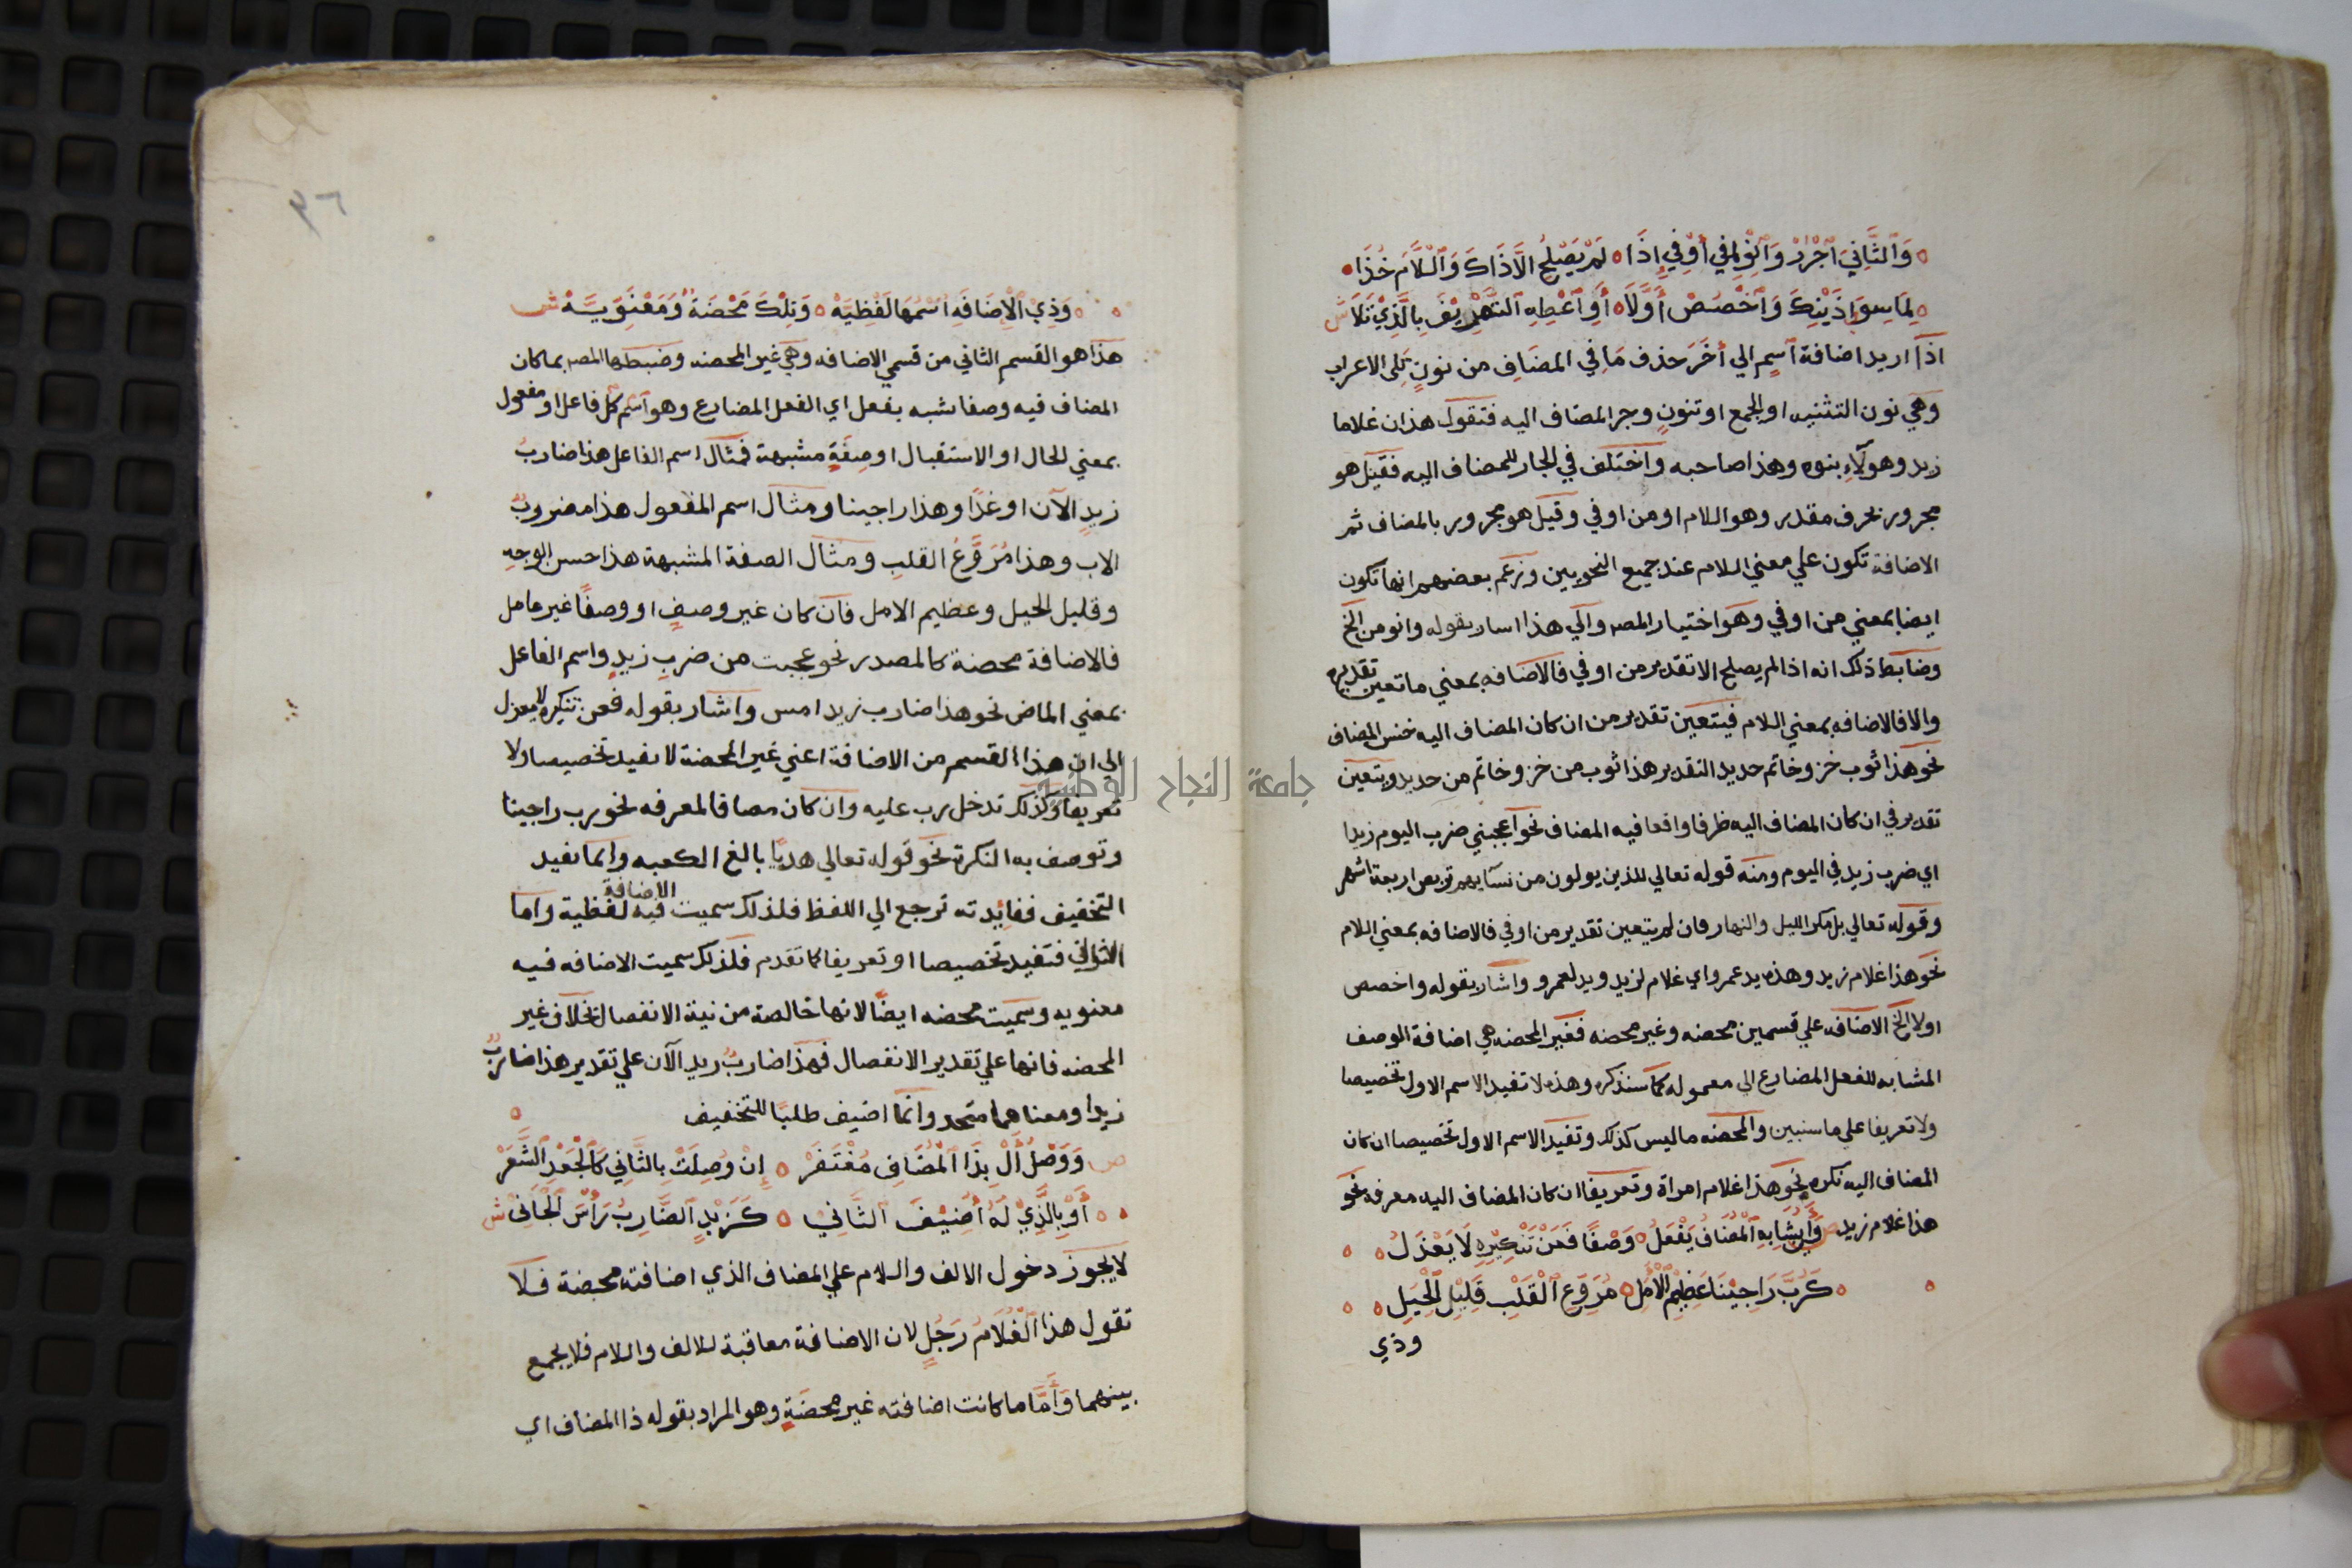 وَالثَّانِيَ اجْرُرْ وَانْوِ مِنْ أَوْ فِي إِذَا لَمْ يَصْلُحِ الَّا ذَاكَ وَاللَّامَ خُذَا
لِمَا سِوَا ذَيْنِكَ وَاخْصُصْ أَوَّلَا أَوِ اعْطِهِ التَّعْرِيْفَ بِالَّذِيْ تَلَا ش
اذا اريد اضافة اسم الي أخَرَ حذف مَا في المضاف من نونٍ تلى الاعراب
وهي نون التثنيه او الجمع او تنونٍ وجر المضاف اليه فتقول هذان غلاما
زيد وهولآءِ بنوه وهذا صاحبه واختلف في الجار للمضاف اليه فقيل هو
مجرور بحرف مقدر وهو اللام او من او في وقيل هو مجرور بالمضاف ثم
الاضافة تكون علي معني اللام عند جميع النحويين وزعم بعضهم انها تكون
ايضا بمعني من او في وهو اختيار المصـ والي هذا اسار بقوله وانو من الخ
وضابط ذلك انه اذا لم يصلح الا تقدير من او في فالاضافه بمعني ما تعين تقديره
والا فالاضافه بمعني اللام فيتعين تقدير من ان كان المضاف اليه جنس المضاف
نحو هذا ثوب خز وخاتم حديد التقدير هذا ثوب من خز وخاتم من حديد ويتعين
تقدير في ان كان المضاف اليه ظرفا واقعا فيه المضاف نحو اعجبني ضرب اليوم زيدا
اي ضرب زيد في اليوم ومنه قوله تعالي للذين يولون من نسآيهم تربص اربعة اشهر
وقوله تعالي بل مكر الليل والنهار فان لم يتعين تقدير من او في فالاضافه بمعني اللام
نحو هذا غلام زيد وهذه يد عمرو اي غلام لزيد ويد لعمرو واشار بقوله واخصص
اولا الخ الاضافه علي قسمين محضه وغير محضه فغير المحضه هي اضافة الوصف
المشابه للفعل المضارع الى معموله كما سنذكره وهذه لا تفيد الاسم الاول تخصيصا
ولا تعريفا علي ما سنبين والمحضه ما ليس كذلك وتفيد الاسم الاول تخصيصا ان كان
المضاف اليه نكره نحو هذا غلام امراة وتعريفا ان كان المضاف اليه معرفه نحو
هذا غلام زيد ص وَإِنْ يُشَابِهِ الْمُضَافُ يَفْعَلُ وَصْفًا فَعَنْ تَنْكِيْرِهِ لَا يَعْزَلُ
كَرُبَّ رَاجِيْنَا عَظِيْمِ الْأَمَلِ مُرَوَّعِ الْقَلْبِ قَلِيْلِ الْحِيَلِ
وذي
٣٦
وَذِيْ الْإِضَافَةِ اسْمُهَا لَفْظِيَّهْ وَتِلْكَ مَحْضَةٌ وَمَعْنَوِيَّهْ ش
هذا هو القسم الثاني من قسمي الاضافه وهي غير المحضه وضبطها المصـ بما كان
المضاف فيه وصفا شبه يفعل اي الفعل المضارع وهو اسم كل فاعل او مفعول
بمعني الحال او الاستقبال او صفةٍ مشبهة فمثال اسم الفاعل هذا ضاربُ
زيدٍ الآن او غدًا وهذا راجينا ومثال اسم المفعول هذا مضروب
الاب وهذا مُرَوَّعُ القلب ومثال الصفة المشبهة هذا حسن الوجهِ
وقليل الحيل وعظيم الامل فان كان غير وصفٍ او وصفًا غير عامل
فالاضافة محضة كالمصدر نحو عجبت من ضربِ زيدٍ واسم الفاعل
بمعني الماض نحو هذا ضارب زيد امس واشار بقوله فعن تنكيره لا يعزل
الى ان هذا القسم من الاضافة اعني غير المحضة لا يفيد تخصيصا ولا
تعريفا وكذلك تدخل رب عليه وان كان مضافا لمعرفه نحو رب راجينا
وتوصف به النكرة نحو قوله تعالي هديًا بالغ الكعبه وانما يفيد
التخفيف ففائدته ترجع الي اللفظ فلذلك سميت الاضافة فيه لفظية واما
الاول فتفيد تخصيصا او تعريفا كما تقدم فلذلك سميت الاضافه فيه
معنويه وسميت محضه ايضًا لانها خالصة من نية الانفصال بخلاف غير
المحضه فانها علي تقدير الانفصال فهذا ضاربُ زيدٍ الآن علي تقدير هذا ضاربٌ
زيدا ومعناهما متحد وانما اضيف طلبًا للتخفيف
ص وَوَصْلُ أَلْ بِذَا الْمُضَافِ مُغْتَفَرْ إِنْ وُصِلَتْ بِالثَّانِي كَالْجَعْدِ الشَّعَرْ
أَوْ بِالَّذِيْ لَهُ أُضِيْفَ الثَّانِيْ كَزَيْدٍ الضَّارِبُ رَأْسَ الْجَانِيْ ش
لا يجوز دخول الالف واللام علي المضاف الذي اضافته محضة فلا
تقول هذا الْغُلَامُ رَجُلٍ لان الاضافة معاقبة للالف واللام فلا يجمع
بينهما وَأَمَّا ما كانت اضافته غير محضَةٍ وهو المراد بقوله ذا المضاف اي
جامعة النجاح الوطنية